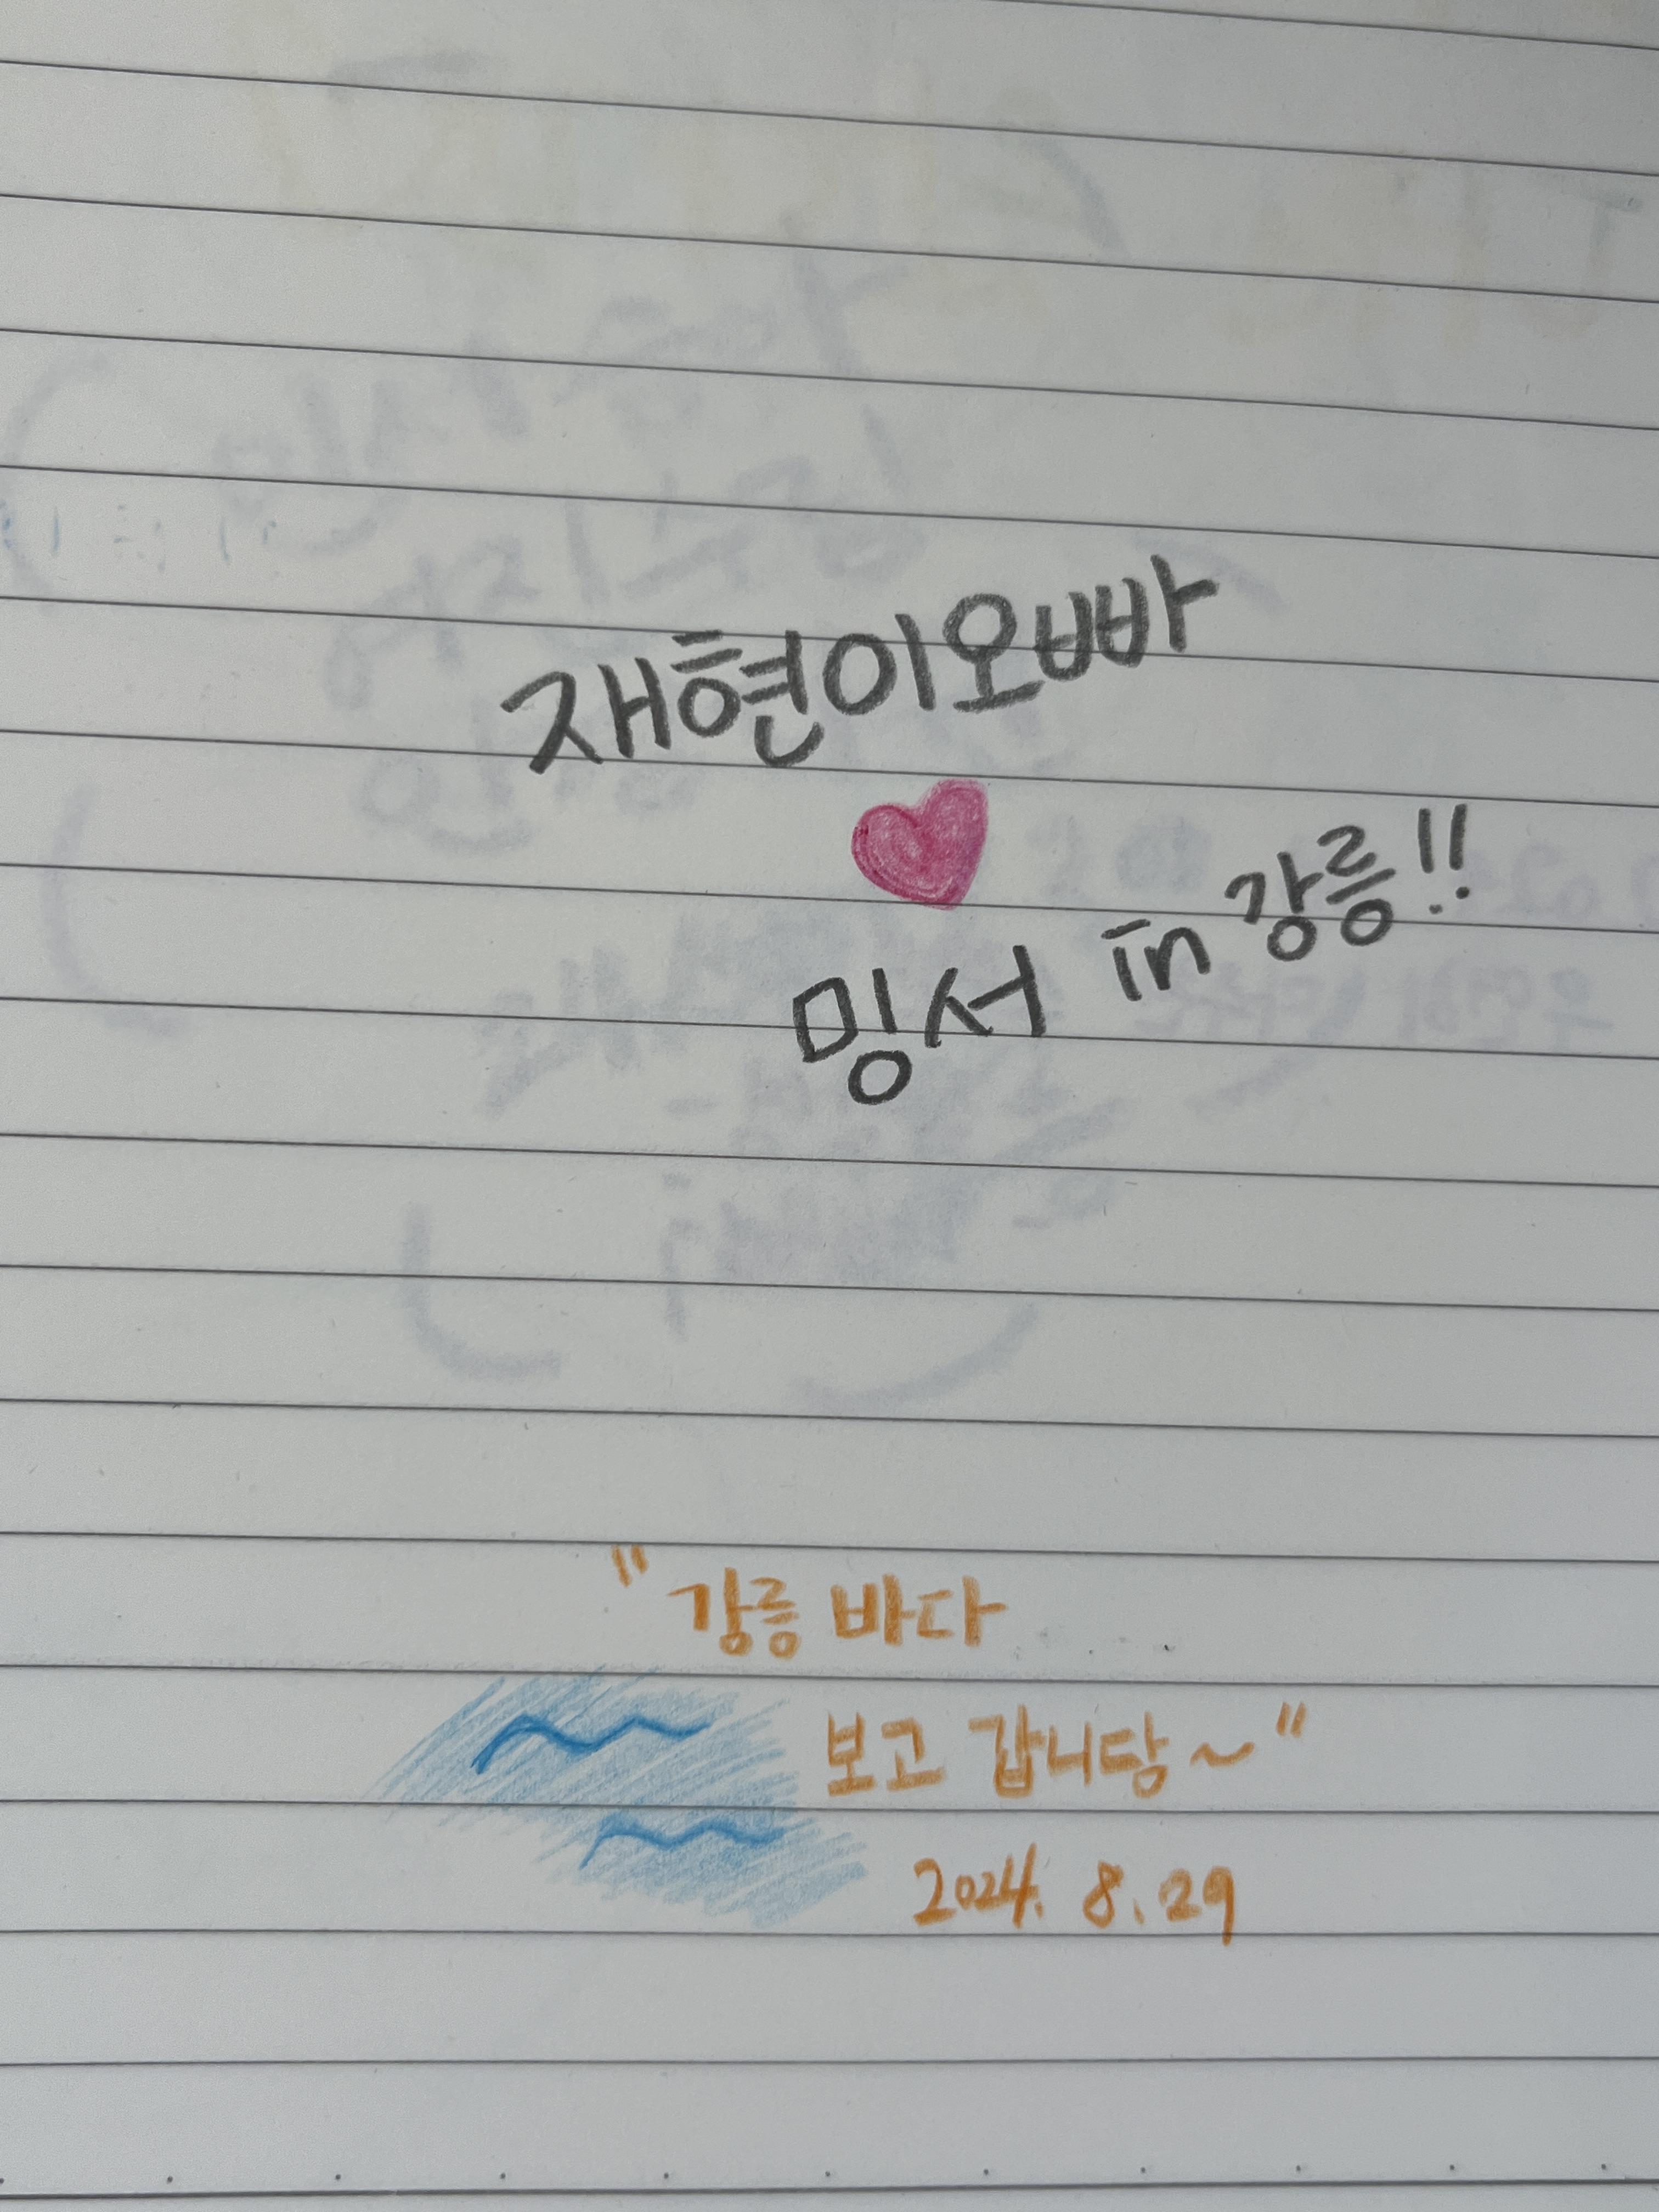 재현이오빠
♥
밍서 in 강릉!!
"강릉 바다
보고 갑니당~"
2024. 8. 29